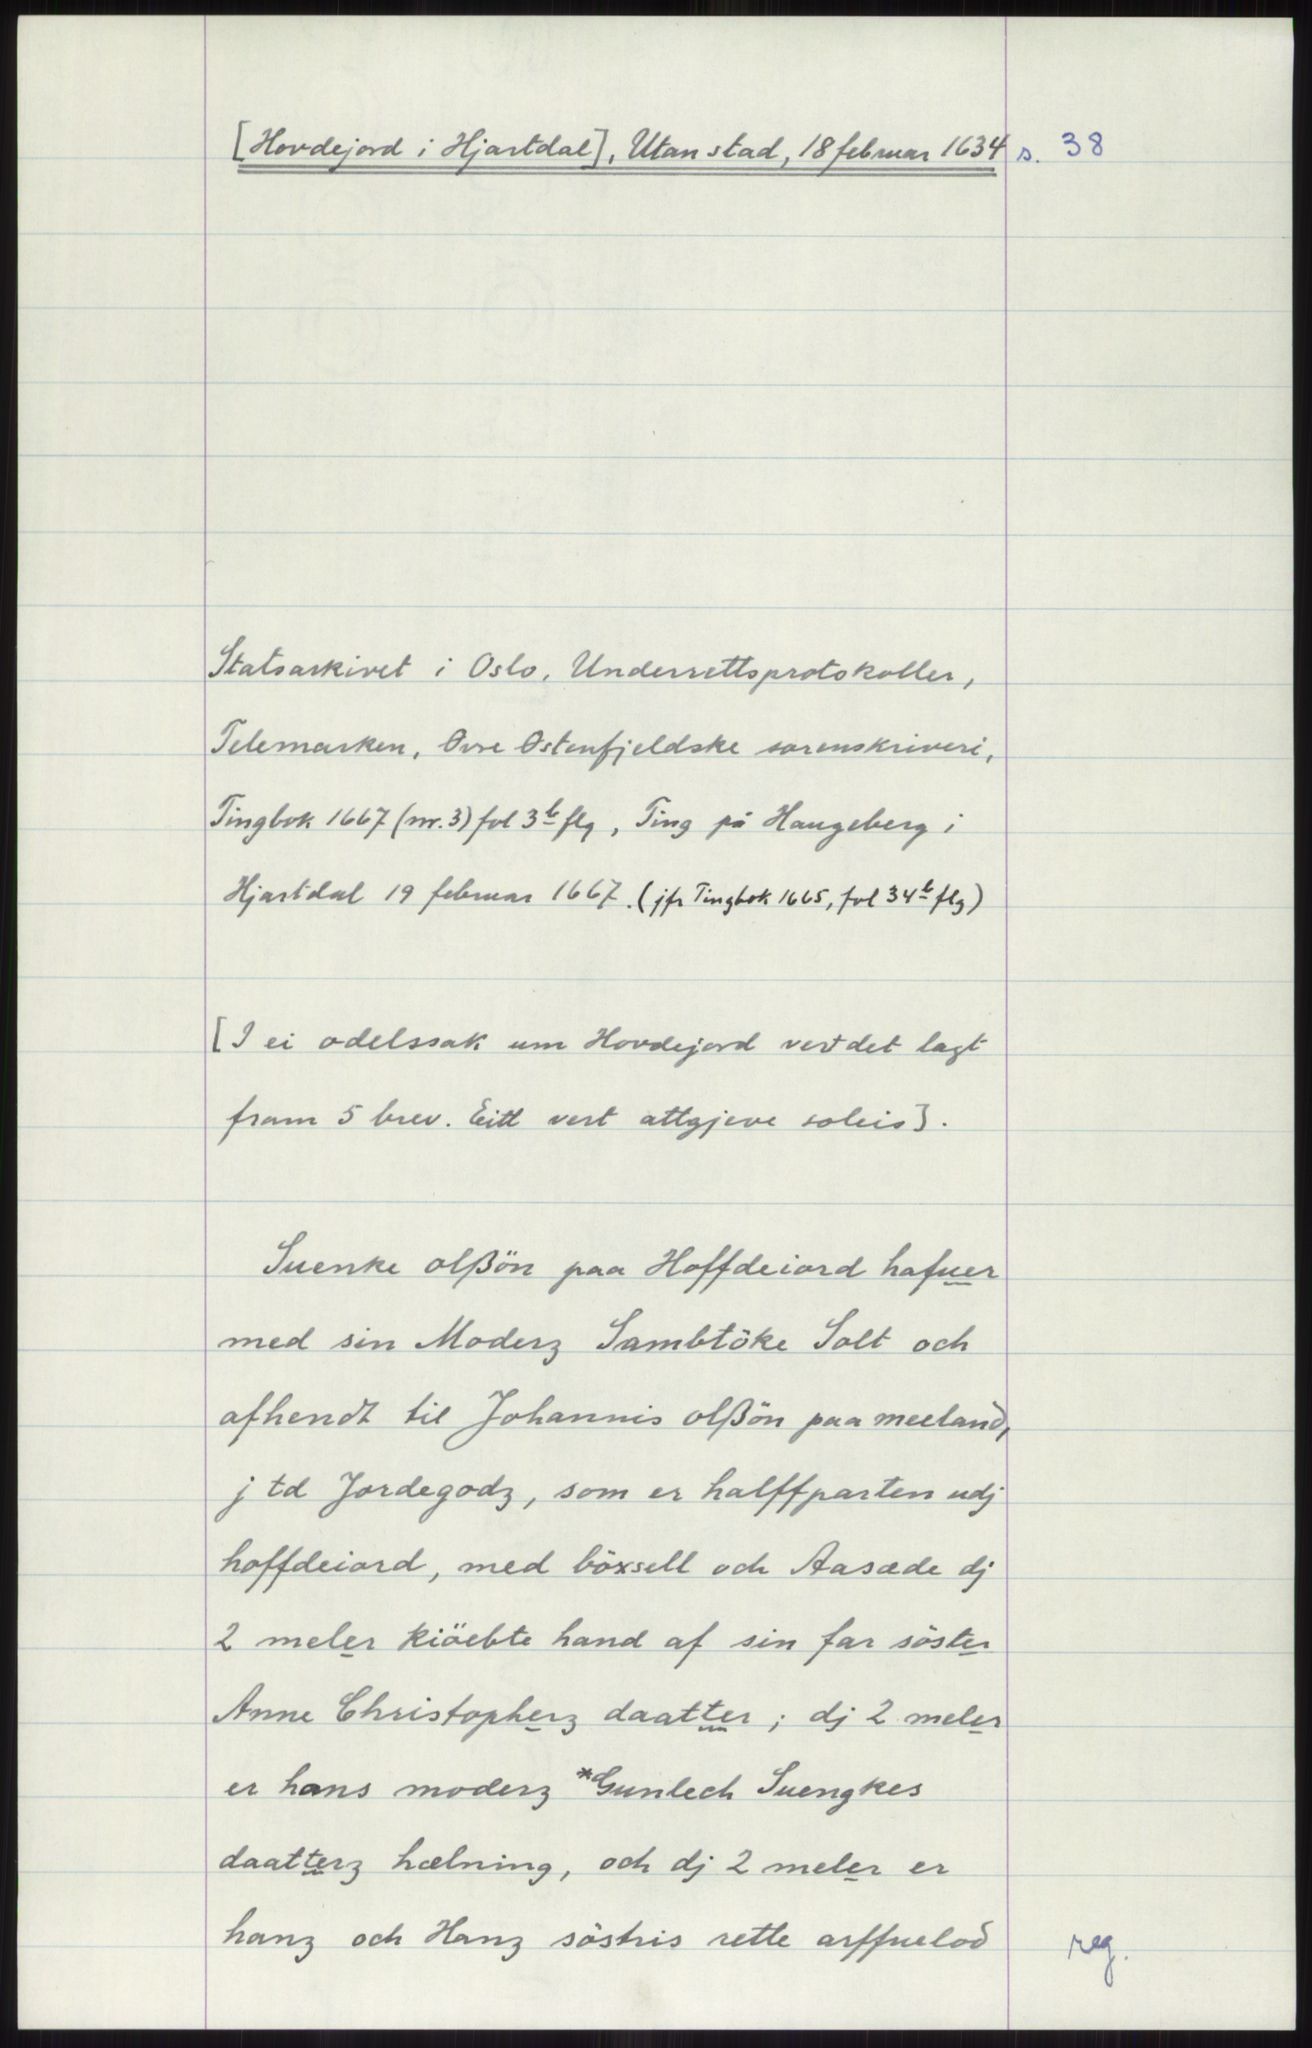 [Hovdejord i Hjartdal], Utan stad, 18 februar 1634 s. 38
Statsarkivet i Oslo. Underrettsprotokoller,
Telemarken, Øvre Østenfjeldske sorenskriveri,
Tingbok 1667 (nr. 3) fol 3b flg, Ting på Haugeberg i
Hjartdal 19 februar 1667. (jfr Tingbok 1665, fol 34b flg)
[I ei odelssak um Hovdejord vert det lagt
fram 5 brev. Eitt vert attgjeve soleis].
Suenke olßön paa Hoffdeiord hafuer
med sin Moderz Sambtöke Solt och
afhendt til Johannis olßön paa meeland,
j td Jordegodz, som er halffparten udj
hoffdeiord, med böxsell och Aasæde dj
2 meler kiöebte hand af sin far söster
Anne Christopherz daatter; dj 2 meler
er hans moderz *Gunlech Suengkes
daatterz hælning, och dj 2 meler er
hanz och Hanz söstris rette arffuelod
reg.